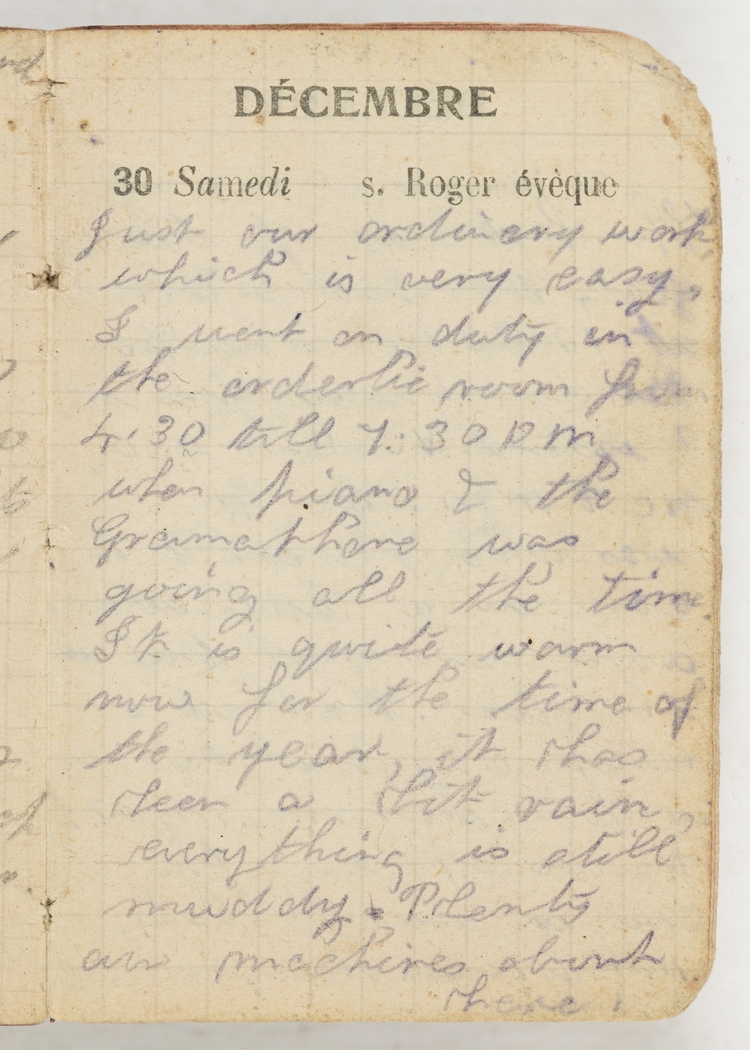 DÉCEMBRE
30 Samedi s. Roger évèque
Just our ordinary work,
which is very easy,
I went on duty in
the orderlie room from
4.30 till 7.30 PM
when piano & the
Gramathone was
going all the time.
It is quite warm
now for the time of
the year, it has
been a bit rain,
everything is still
muddy. Plenty
air machines about
here.